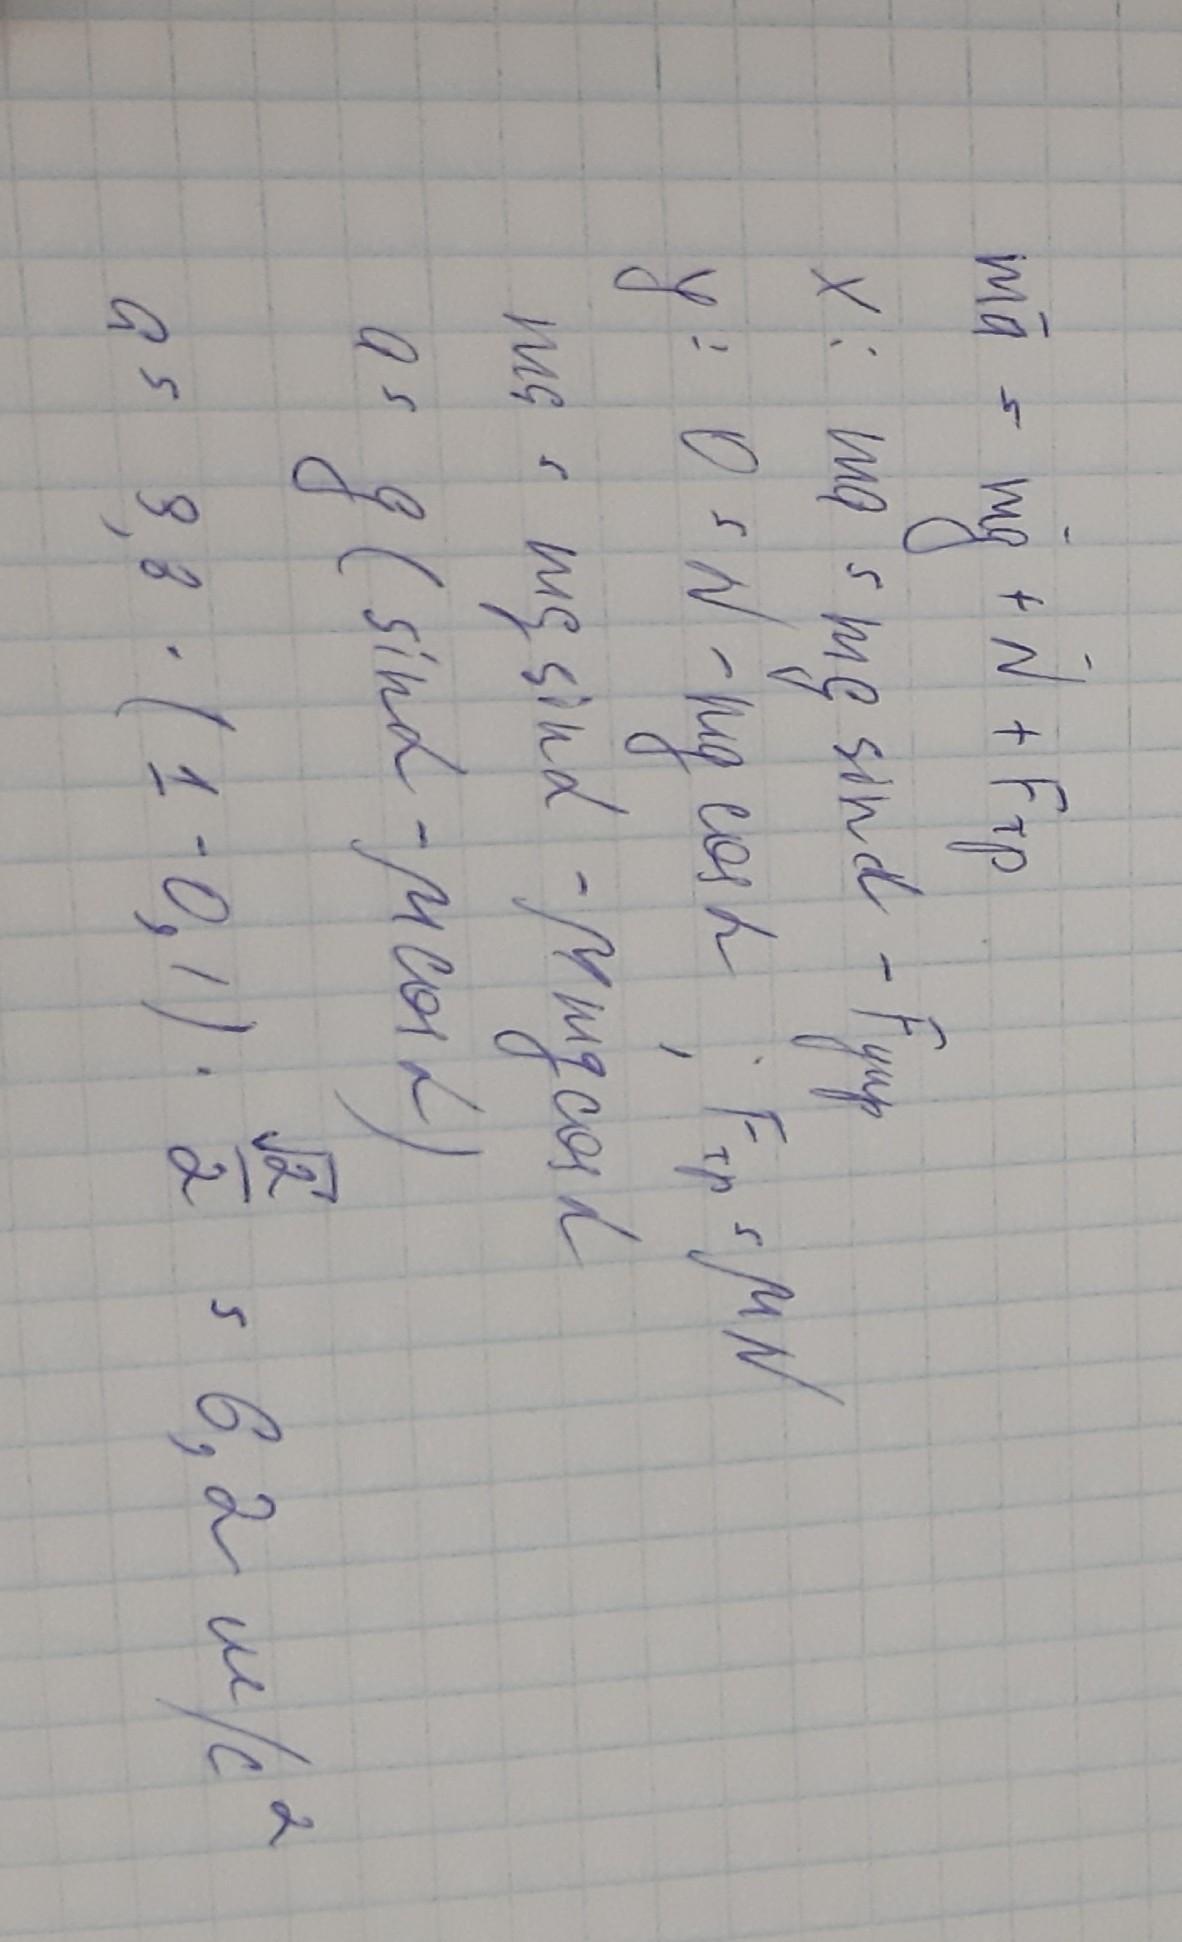 mā = mḡ + N̄ + Fтр
x: ma = mg sinα - Fупр
y: 0 = N - mg cosα ; Fтр = μN
ma = mg sinα - μmg cosα
a = g(sinα - μcosα)
a = 9,8 · (1 - 0,1) · √2/2 = 6,2 м/с²